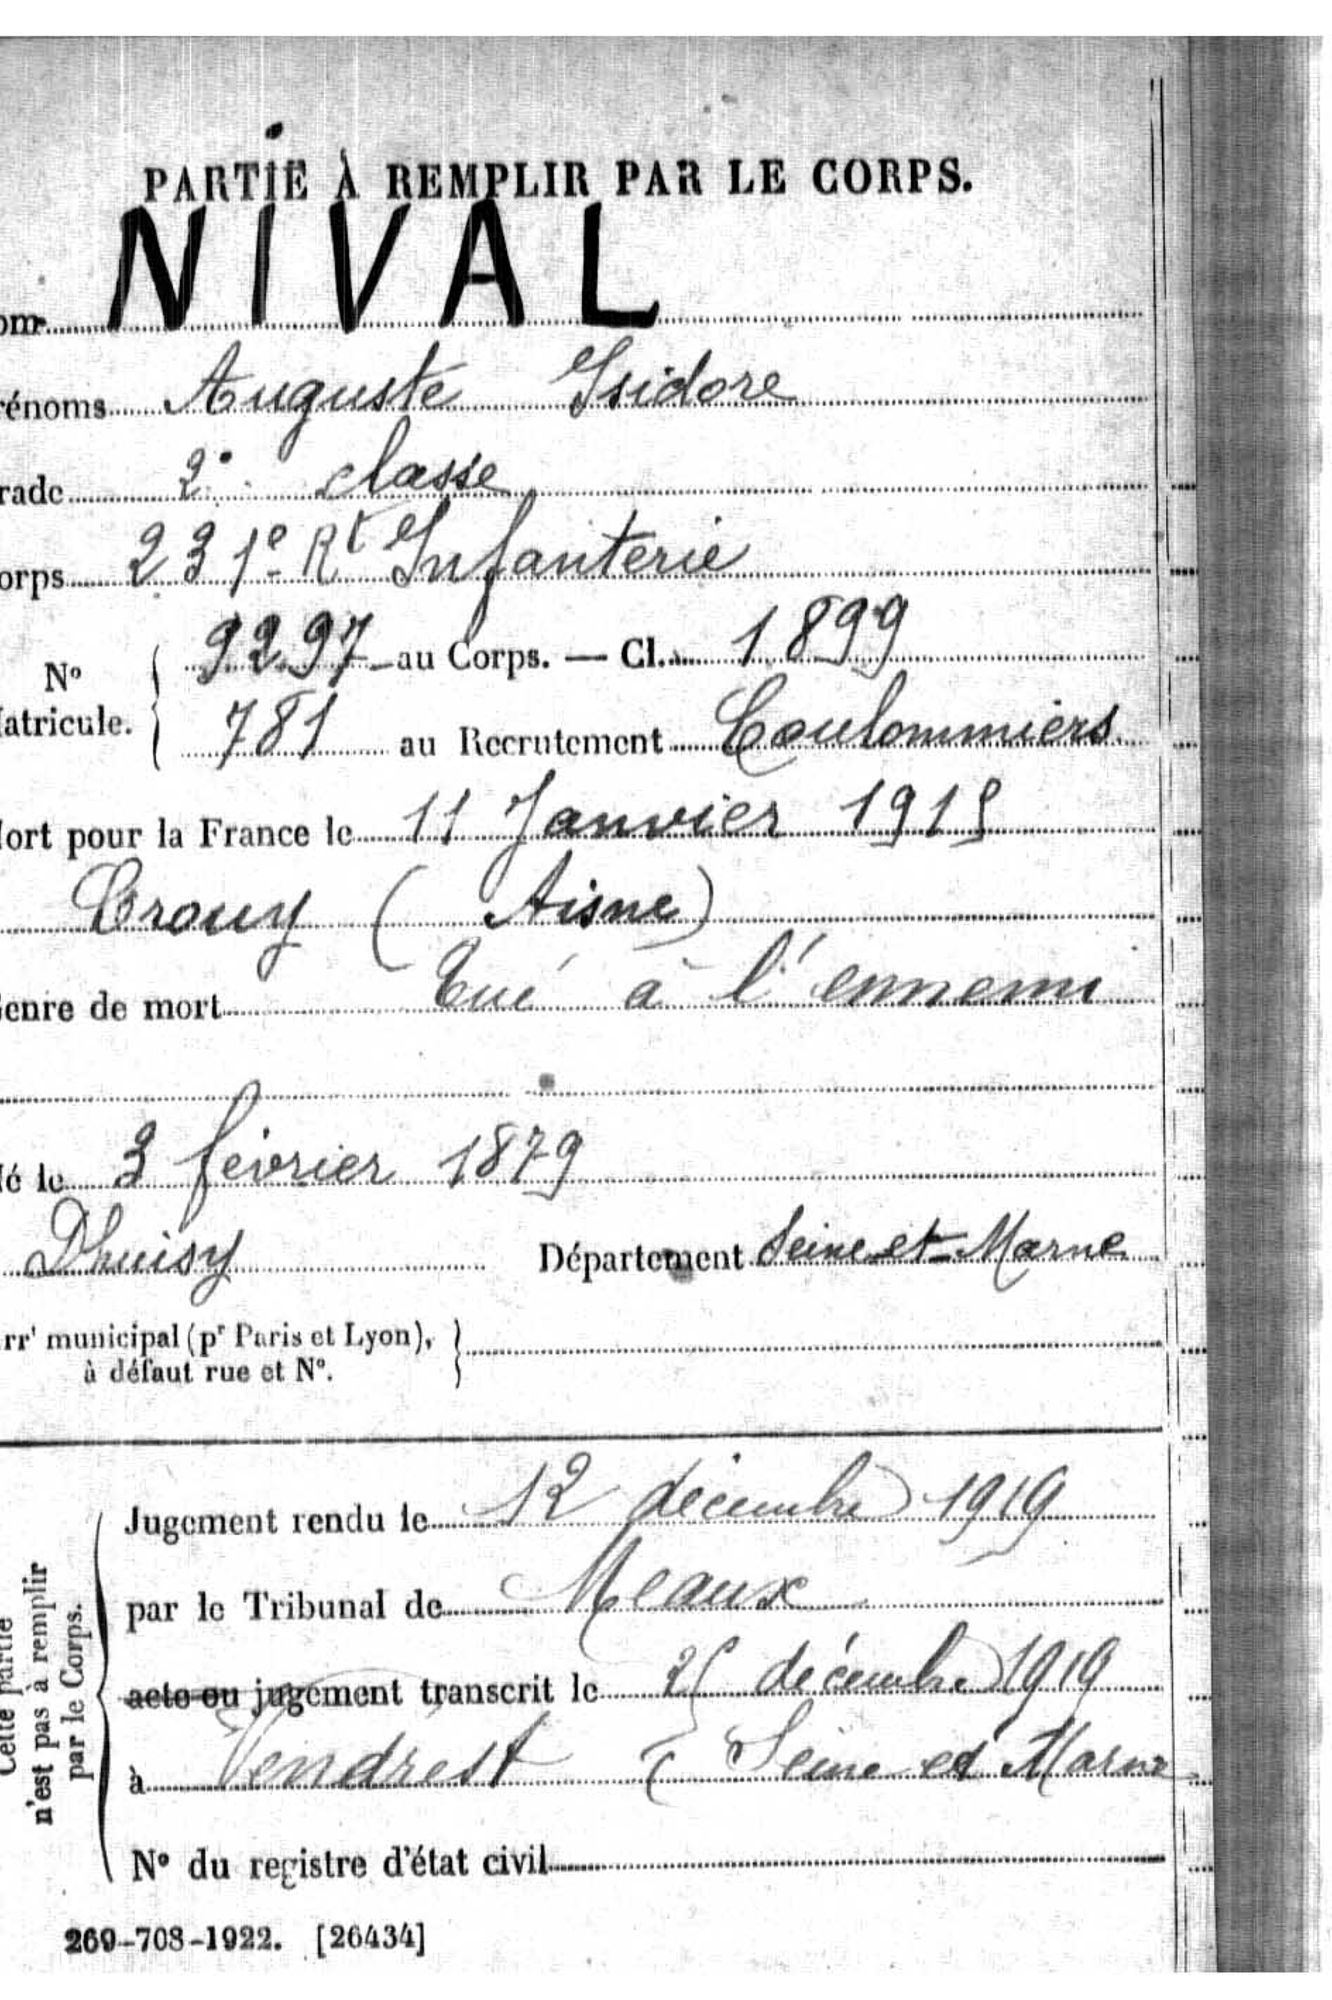 PARTIE À REMPLIR PAR LE CORPS.
om NIVAL
rénoms Auguste Isidore
rade 2e classe
orps 231e Rt Infanterie
9297 au Corps. — Cl. 1899
No
atricule.
781 au Recrutement Coulommiers
ort pour la France le 11 Janvier 1915
Crouy (Aisne)
enre de mort Tué à l'ennemi
é le 3 février 1879
Dhuisy Département Seine-et-Marne
rrt municipal (pr Paris et Lyon),
à défaut rue et No.
Cette partie
n'est pas à remplir
par le Corps.
Jugement rendu le 12 décembre 1919
par le Tribunal de Meaux
acte ou jugement transcrit le 25 décembre 1919
à Vendrest (Seine et Marne
No du registre d'état civil
269-708-1922. [26434]